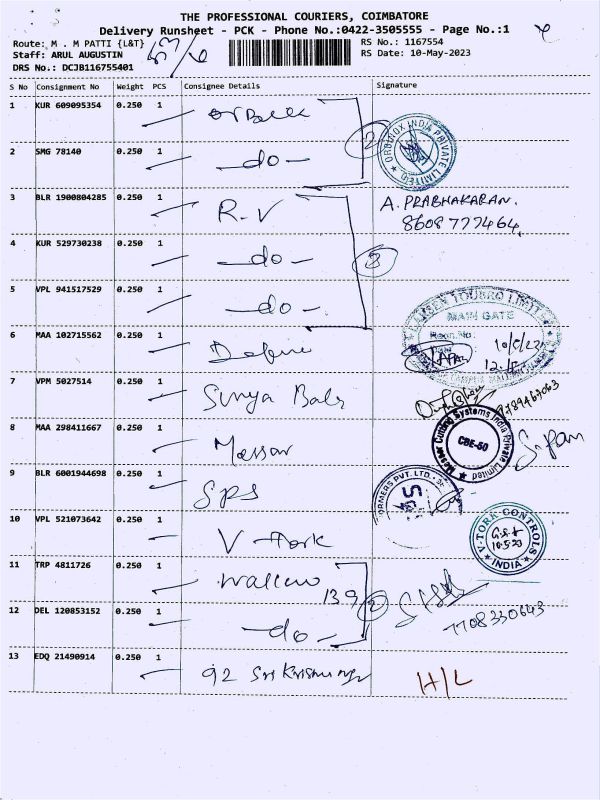 THE PROFESSIONAL COURIERS, COIMBATORE
Delivery Runsheet - PCK - Phone No.:0422-3505555 - Page No.:1
Route: M . M PATTI {L&T}
RS No.: 1167554
Staff: ARUL AUGUSTIN
RS Date: 10-May-2023
DRS No.: DCJB116755401
S No Consignment No Weight PCS Consignee Details Signature
1 KUR 609095354 0.250 1
ORDUROX INDIA PRIVATE LIMITED
2 SMG 78140 0.250 1 -do-
2
3 BLR 1900804285 0.250 1 R.V
A. PRABHAKARAN.
8608777464.
4 KUR 529730238 0.250 1 -do-
3
5 VPL 941517529 0.250 1 -do-
LARSEN TOUBRO LIMITED
MAIN GATE
6 MAA 102715562 0.250 1
7 VPM 5027514 0.250 1 Surya
Messer Cutting Systems India Private Limited
CBE-50
8 MAA 298411667 0.250 1 Messer
9 BLR 6001944698 0.250 1 SPS
FORMERS PVT. LTD.
10 VPL 521073642 0.250 1 V-Tork
V-TORK CONTROLS
10.5.23
INDIA
11 TRP 4811726 0.250 1
139
2
12 DEL 120853152 0.250 1 -do-
7708330643
13 EDQ 21490914 0.250 1 92 Sri Krishna ngr
H/L